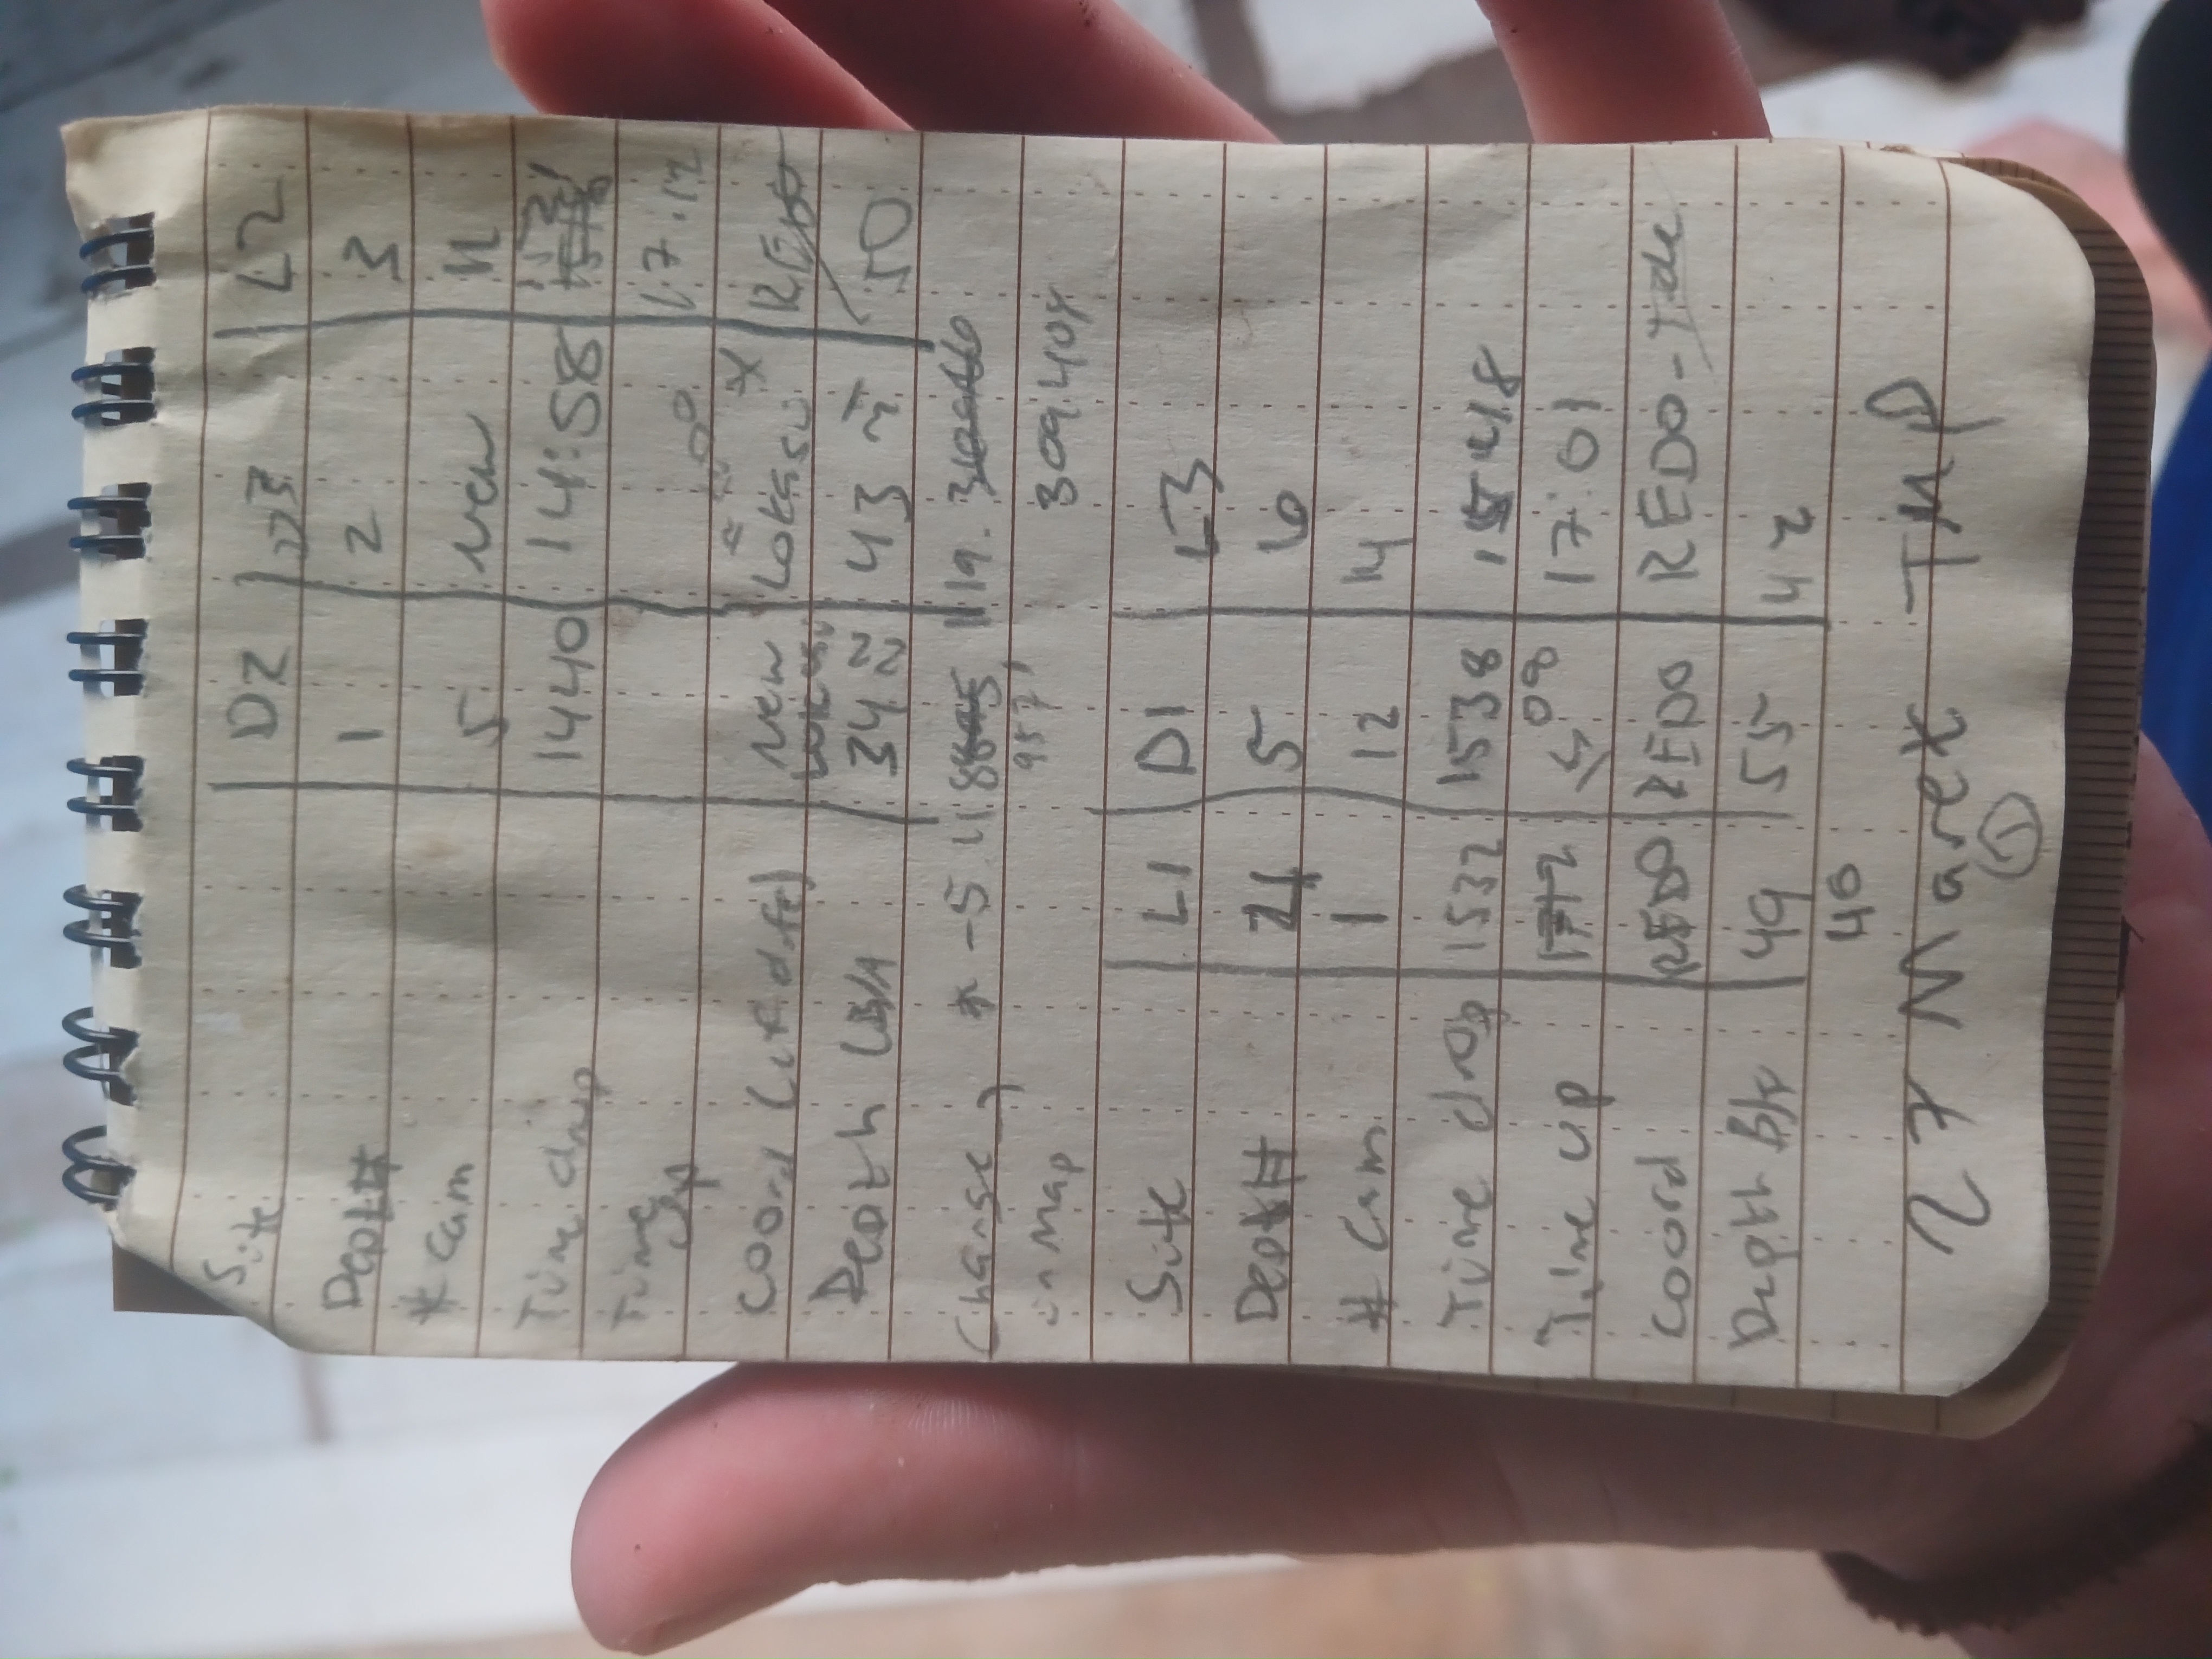 Site D2 D3 L2
Dept# 1 2 3
# Cam 5 New 11
Time drop 1440 14:58 1521
Time up 17.12
Coord (if diff) New Lokasi Lokasi * REDO
Depth B/A 34 22 43 50
Change * -5.48 119.
in Map 957 309404
Site L1 D1 L3
Dept# 4 5 6
# Cam 1 12 14
Time drop 1532 1538 1548
Time up 1712 08 17:01
Coord REDO REDO REDO-
Depth B/A 49 55 42
40
27 Maret TMP
1